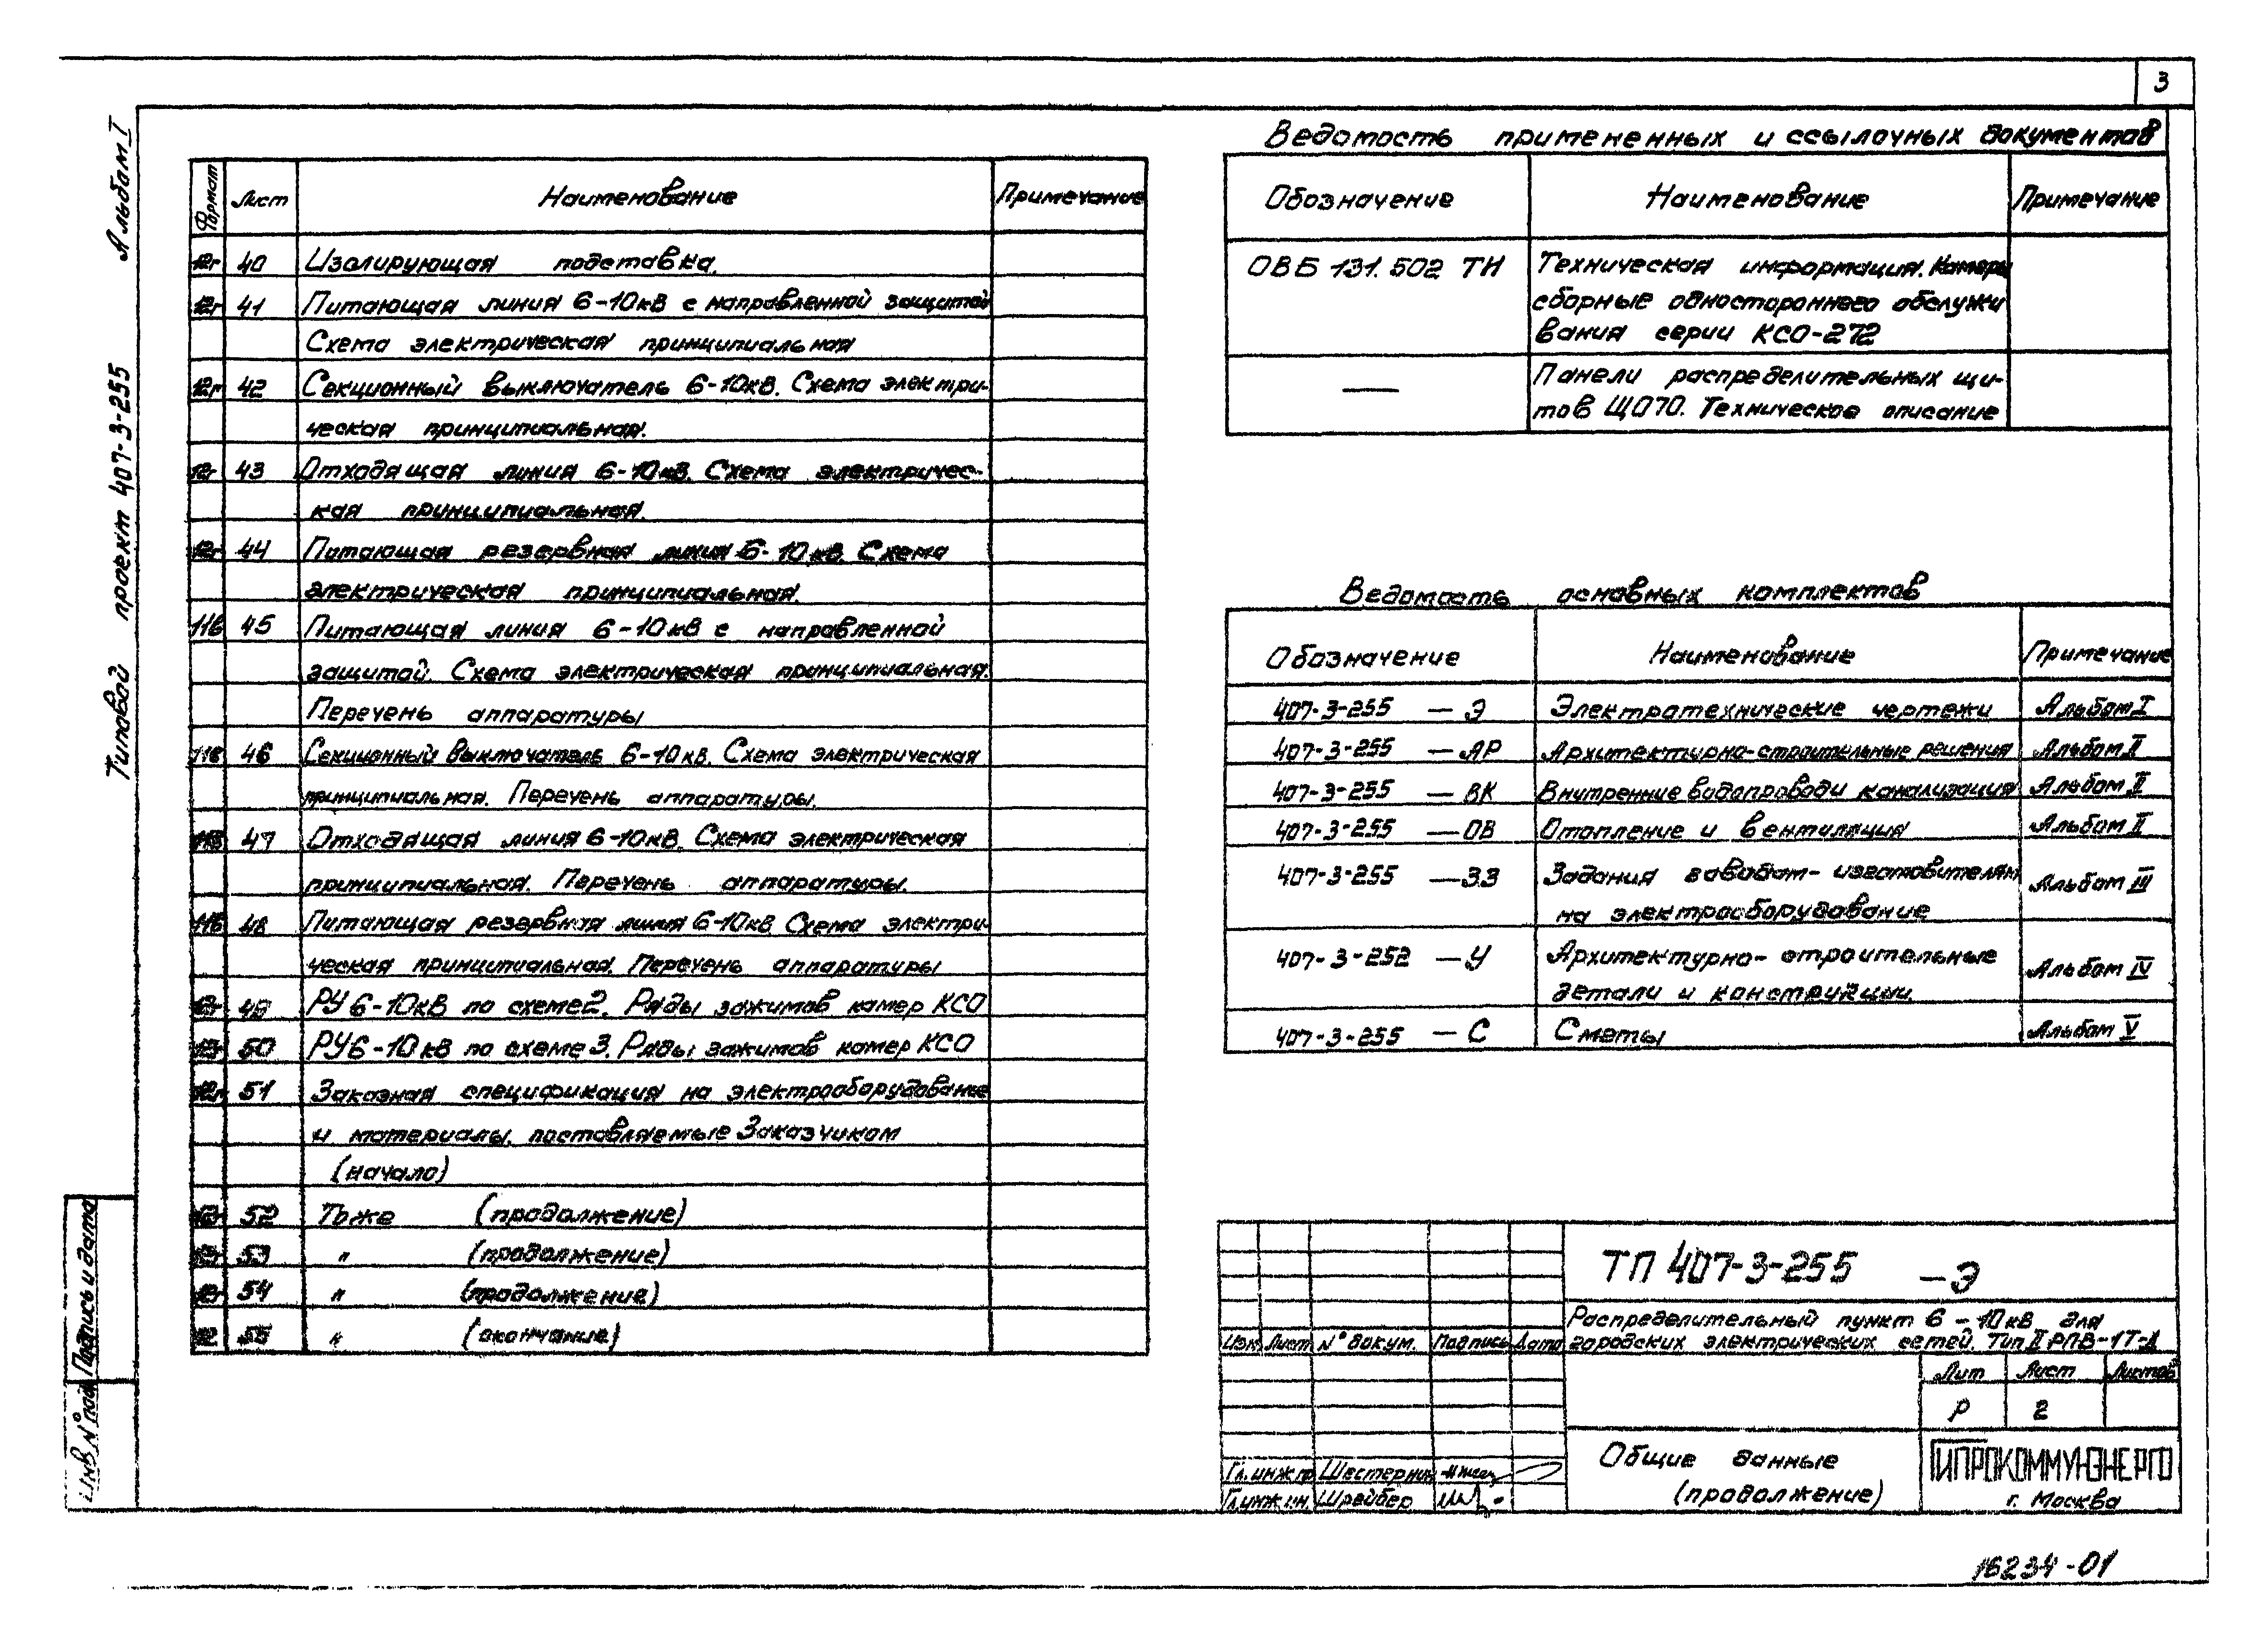 3
Альбом I
Типовой проект 407-3-255
Формат Лист Наименование Примечание
12г 40 Изолирующая подставка.
12г 41 Питающая линия 6-10кВ с направленной защитой
Схема электрическая принципиальная
12г 42 Секционный выключатель 6-10кВ. Схема электри-
ческая принципиальная.
12г 43 Отходящая линия 6-10кВ. Схема электричес-
кая принципиальная.
12г 44 Питающая резервная линия 6-10кВ. Схема
электрическая принципиальная.
11в 45 Питающая линия 6-10кВ с направленной
защитой. Схема электрическая принципиальная.
Перечень аппаратуры
11в 46 Секционный выключатель 6-10кВ. Схема электрическая
принципиальная. Перечень аппаратуры.
11в 47 Отходящая линия 6-10кВ. Схема электрическая
принципиальная. Перечень аппаратуры.
11в 48 Питающая резервная линия 6-10кВ Схема электри-
ческая принципиальная. Перечень аппаратуры
49 РУ 6-10кВ по схеме 2. Ряды зажимов камер КСО
50 РУ 6-10кВ по схеме 3. Ряды зажимов камер КСО
12г 51 Заказная спецификация на электрооборудование
и материалы, поставляемые Заказчиком
(начало)
52 То же (продолжение)
53 " (продолжение)
54 " (продолжение)
55 " (окончание)
Ведомость примененных и ссылочных документов
Обозначение Наименование Примечание
ОВБ 131. 502 ТИ Техническая информация. Камеры
сборные одностороннего обслужи
вания серии КСО-272
— Панели распределительных щи-
тов ЩО70. Техническое описание
Ведомость основных комплектов
Обозначение Наименование Примечание
407-3-255 — Э Электротехнические чертежи Альбом I
407-3-255 — АР Архитектурно-строительные решения Альбом II
407-3-255 — ВК Внутренние водопровод и канализация Альбом II
407-3-255 — ОВ Отопление и вентиляция Альбом II
407-3-255 — ЗЗ Задания заводам-изготовителям Альбом III
на электрооборудование
407-3-252 — У Архитектурно-строительные Альбом IV
детали и конструкции.
407-3-255 — С Сметы Альбом V
ТП 407-3-255 -Э
Распределительный пункт 6-10кВ для
городских электрических сетей. Тип II РПВ-1Т-Д
Изм Лист № докум. Подпись Дата
Лит Лист Листов
Р 2
Общие данные
(продолжение)
ГИПРОКОММУНЭНЕРГО
г. Москва
Гл.инж.пр. Шестернин
Гл.инж.ин. Шрейбер
Подпись и дата
Инв. № подл
16234-01